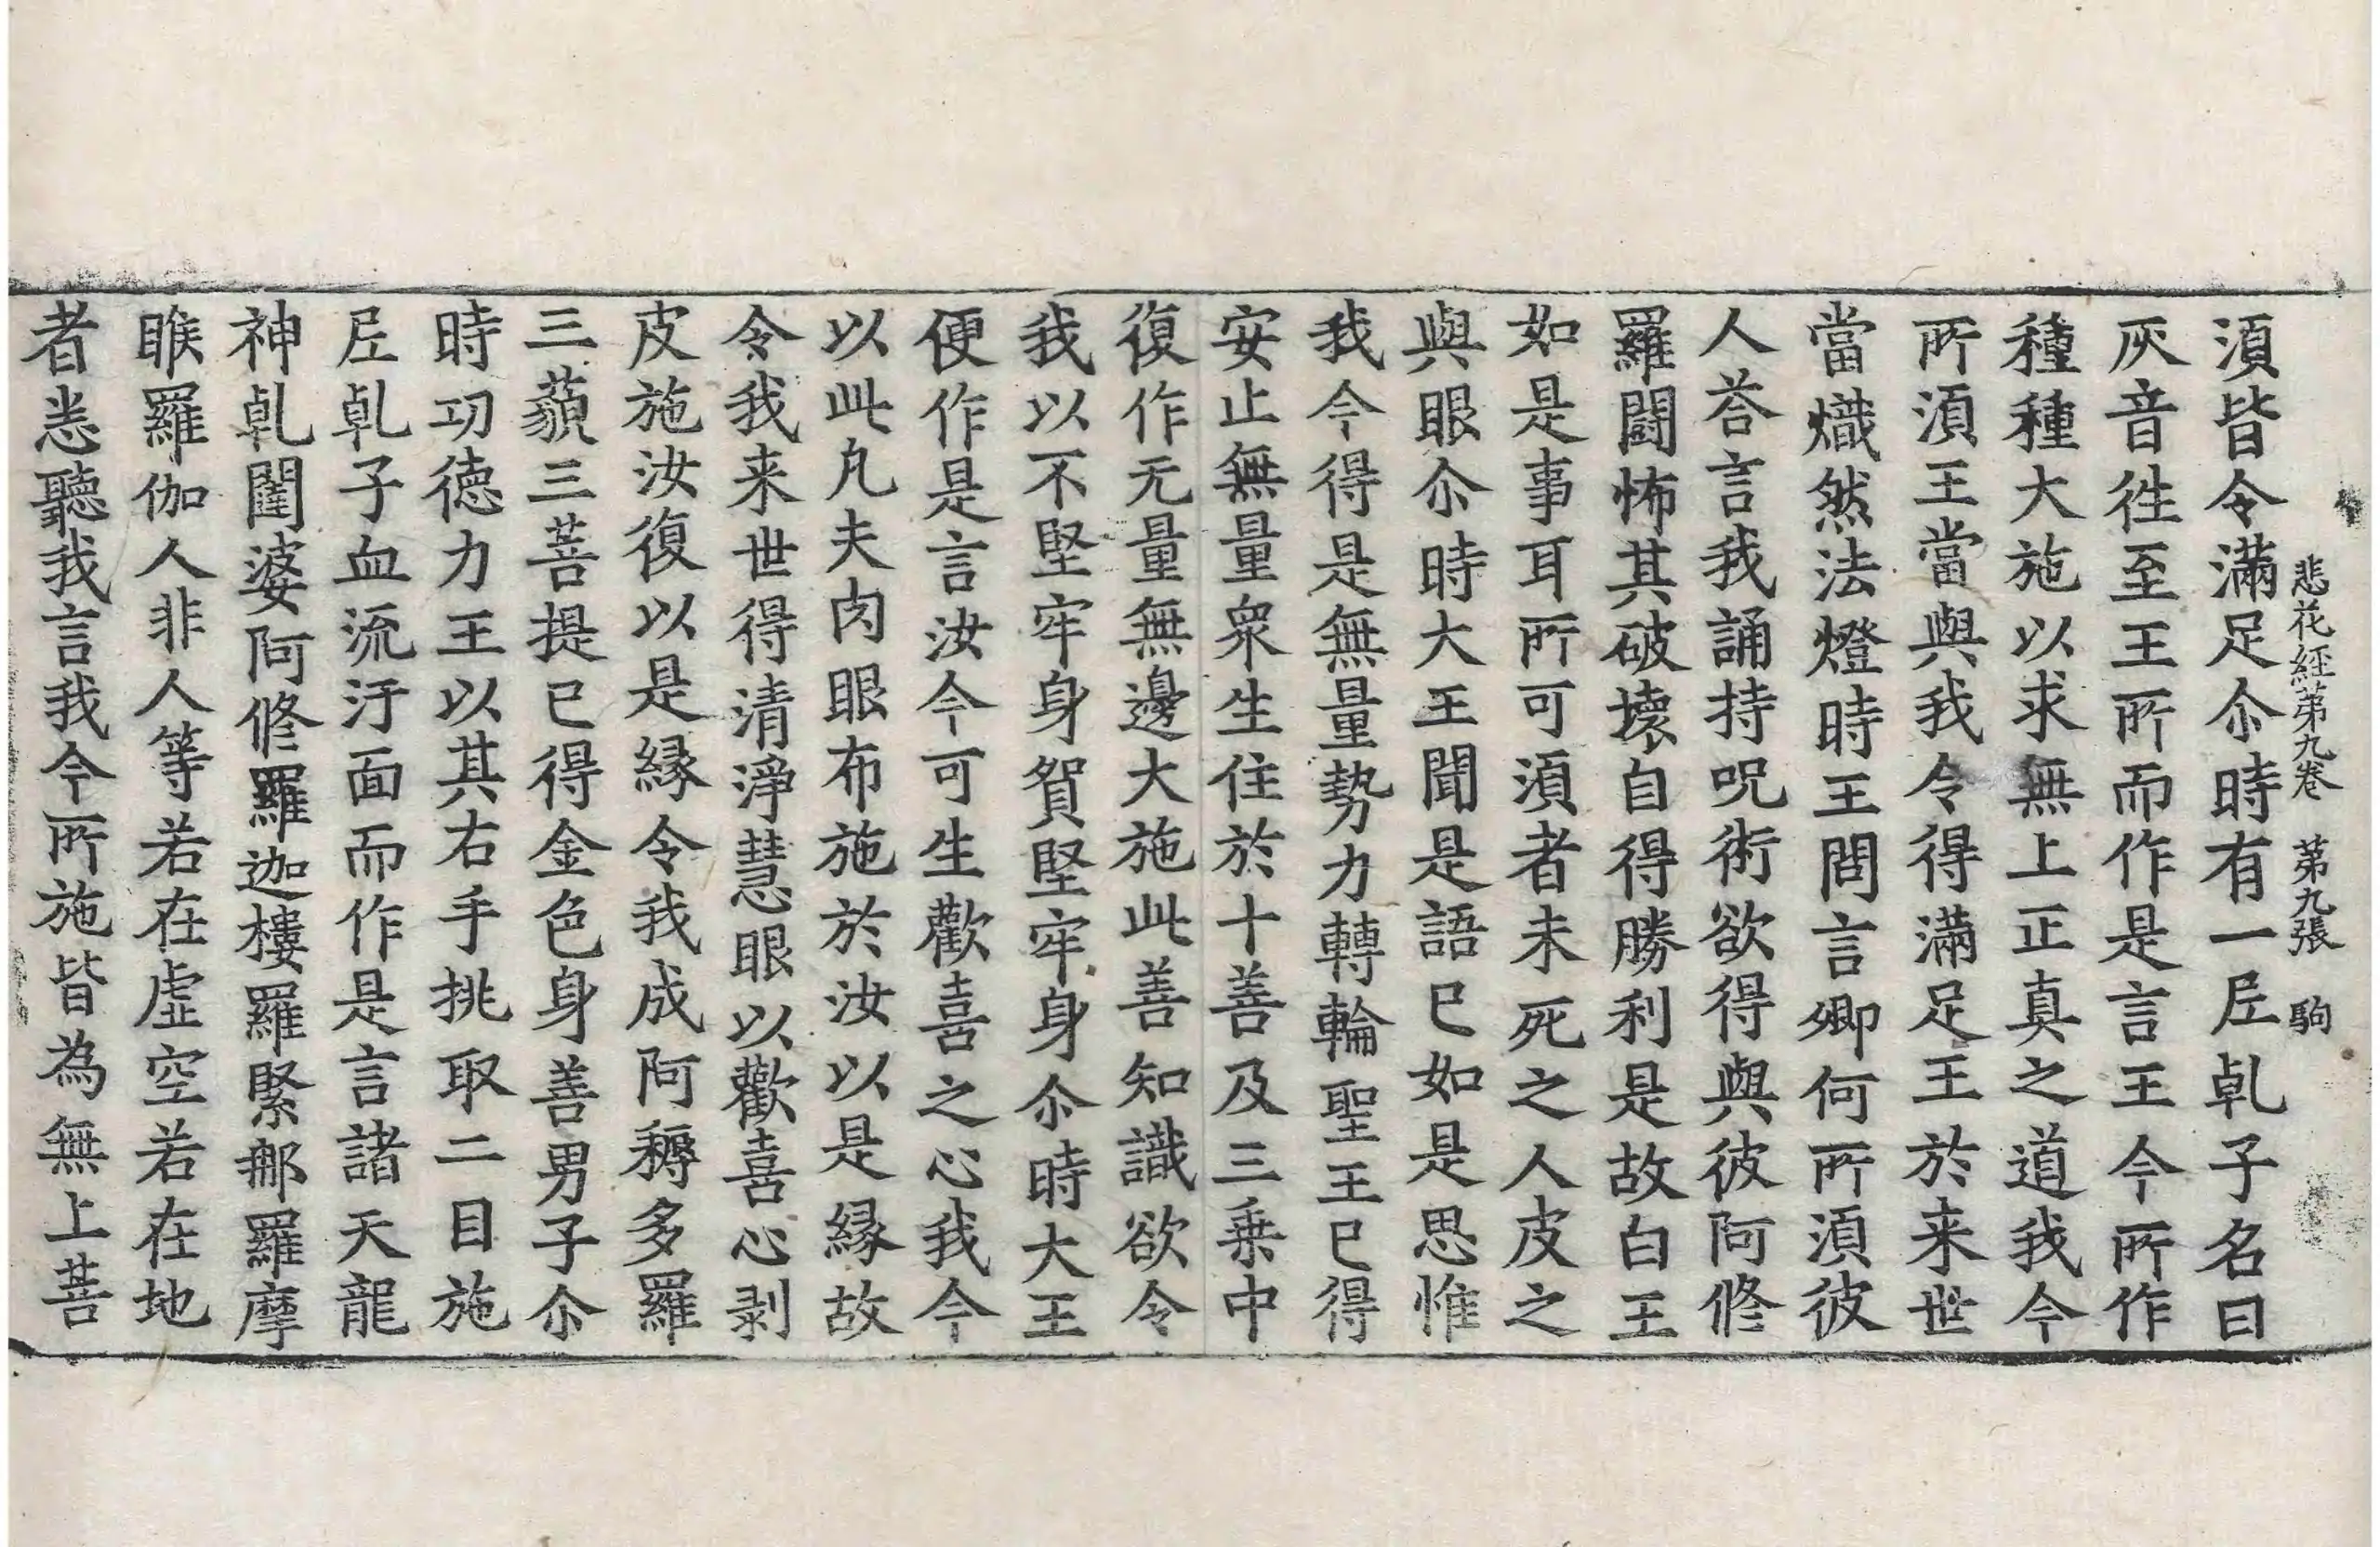 悲花経第九卷　第九張　駒
湏皆令滿足尒時有一𡰱乹子名曰
灰音徃至王所而作是言王今所作
種種大施以求無上正真之道我今
所湏王當與我令得滿足王於来世
當熾然法燈時王問言卿何所湏彼
人荅言我誦持呪術欲得與彼阿修
羅鬪怖其破壞自得勝利是故白王
如是事耳所可湏者未死之人皮之
與眼尒時大王聞是語已如是思惟
我今得是無量勢力轉輪聖王已得
安止無量衆生住於十善及三乗中
復作无量無邊大施此善知識欲令
我以不堅牢身貿堅牢身尒時大王
便作是言汝今可生歡喜之心我今
以此凡夫肉眼布施於汝以是緣故
令我来世得清淨慧眼以歡喜心剥
皮施汝復以是緣令我成阿耨多羅
三藐三菩提已得金色身善男子尒
時功德力王以其右手挑取二目施
𡰱乹子血流汙面而作是言諸天龍
神乹闥婆阿修羅迦樓羅緊那羅摩
睺羅伽人非人等若在虛空若在地
者悉聽我言我今所施皆為無上菩